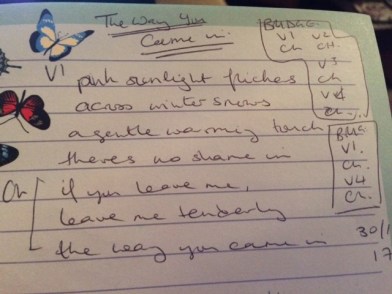 The Way You
Came in.
V1
pink sunlight
across winter snows
a gentle warming touch
theres no shame in
Ch
if you leave me,
leave me tenderly
the way you came in
V1 V2
Ch CH.
V3
Ch
V4
Ch.
V1.
Ch.
V4
Ch.
30/1
17